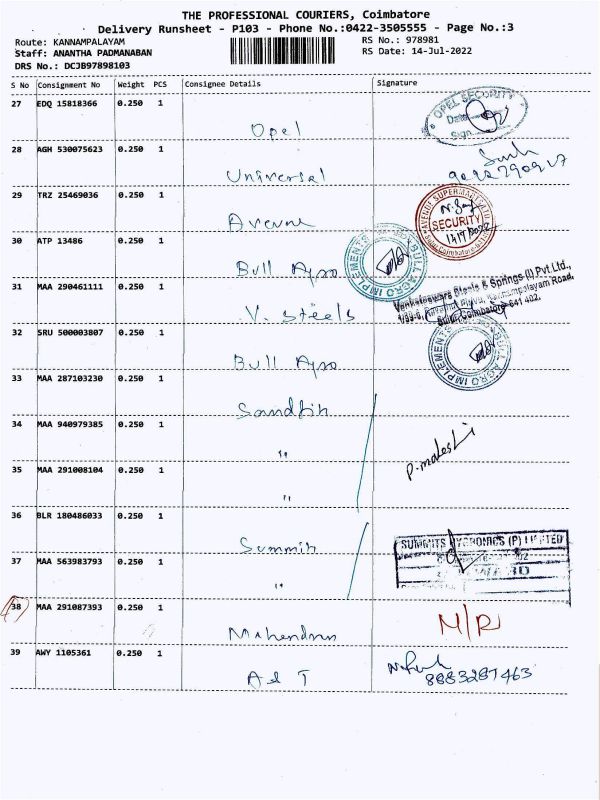 THE PROFESSIONAL COURIERS, Coimbatore
Delivery Runsheet - P103 - Phone No.:0422-3505555 - Page No.:3
Route: KANNAMPALAYAM
RS No.: 978981
Staff: ANANTHA PADMANABAN
RS Date: 14-Jul-2022
DRS No.: DCJB97898103
S No Consignment No Weight PCS Consignee Details Signature
27 EDQ 15818366 0.250 1
Opel
OPEL SECURITY
Date
Sign
28 AGH 530075623 0.250 1
Universal
29 TRZ 25469036 0.250 1
AVENUE SUPERMARTS LTD
SECURITY
30 ATP 13486 0.250 1
Bull Agro
BULL AGRO IMPLEMENTS
31 MAA 290461111 0.250 1
V. Steels
Venkateswara Steels & Springs (I) Pvt.Ltd.,
Kannampalayam Road,
Sulur, Coimbatore-641 402.
32 SRU 500003807 0.250 1
Bull Agro
BULL AGRO IMPLEMENTS
33 MAA 287103230 0.250 1
Sandfin
34 MAA 940979385 0.250 1
"
35 MAA 291008104 0.250 1
"
36 BLR 180486033 0.250 1
SUMMITS HYGRONICS (P) LIMITED
37 MAA 563983793 0.250 1
"
38 MAA 291087393 0.250 1
Mahendran
N/R
39 AWY 1105361 0.250 1
A & T
8883287463